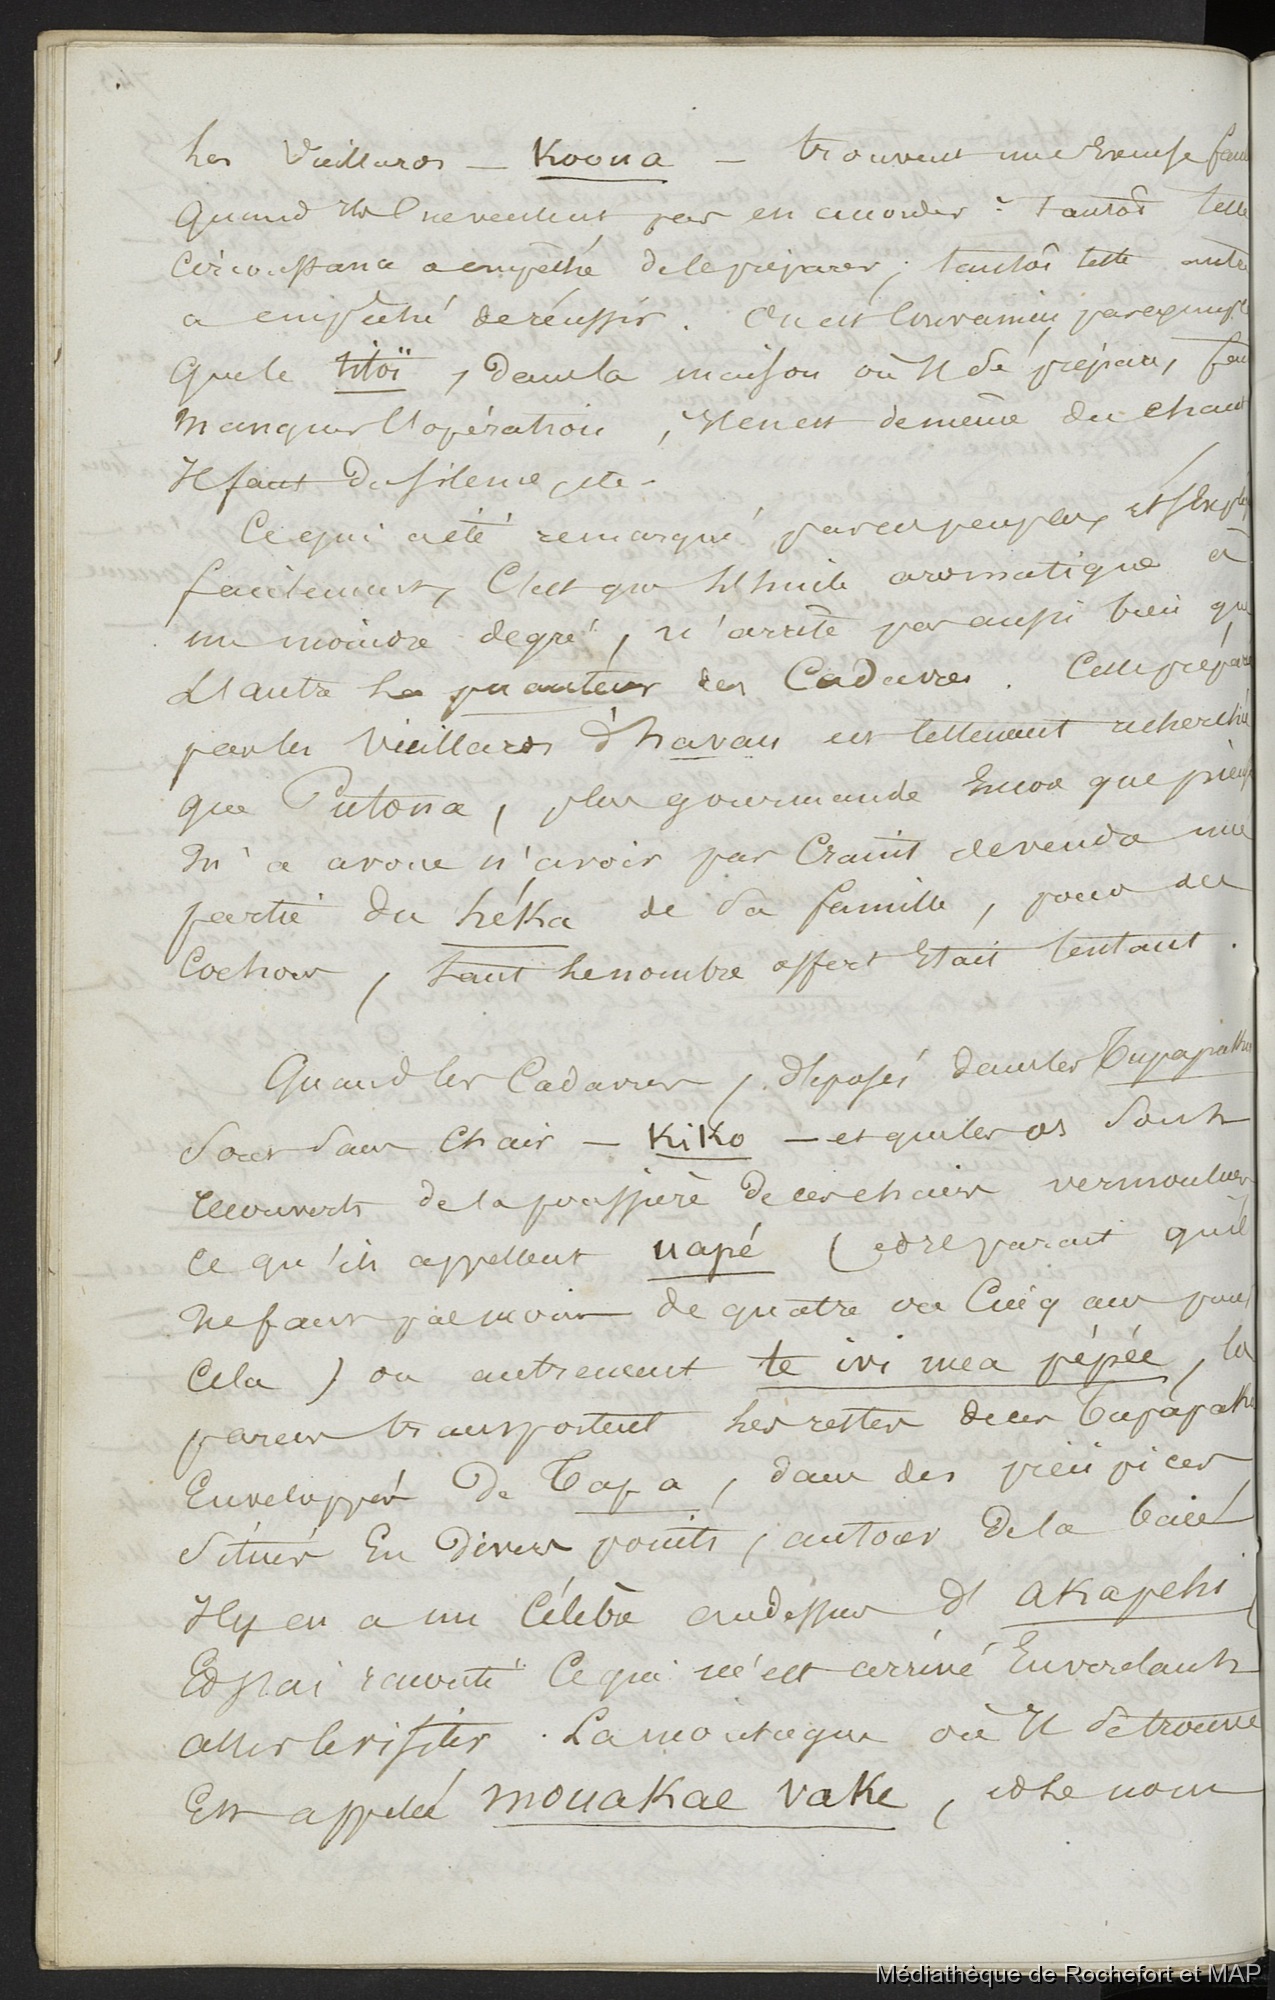 Les Vieillards — Kooua — trouvent une Excuse
quand ils ne veulent pas en accorder : tantôt telle
Circonstance a empêché de le préparer ; tantôt telle autre
a empêché de réussir . On est Convaincu, par exemple
que le titoï , dans la maison où il se prépare, fait
manquer l'opération , il en est de même du chant
il faut du silence, etc -
Ce qui a été remarqué par ces peuples, et s'explique
facilement, C'est que l'huile aromatique à
un moindre degré , n'arrête pas aussi bien que
L'autre la puanteur des Cadavres . Celle préparée
par les Vieillards d'havau est tellement recherchée
que Putona , plus gourmande Encore que
m'a avoué n'avoir pas Craint de vendre une
partie du héka de sa famille , pour des
Cochons , tant le nombre offert Etait tentant .
Quand les Cadavres , déposés dans les Tupapakou
sont sans chair — Kiko — et que les os sont
recouverts de la poussière de ces chairs vermoulues
ce qu'ils appellent uapé ( et il parait qu'il
ne faut pas moins de quatre ou Cinq ans pour
Cela ) ou autrement te ivi mea pépée , les
parens transportent les restes de ces Tupapakou
Enveloppés de Tapa , dans des précipices
Situés En divers points , autour de la baie
Il y en a un Célèbre au dessus d' Akapehi ,
Et j'ai raconté Ce qui m'est arrivé En voulant
aller le visiter . La montagne où il se trouve
Est appelée mouakae vake , et le nom
Médiathèque de Rochefort et MAP